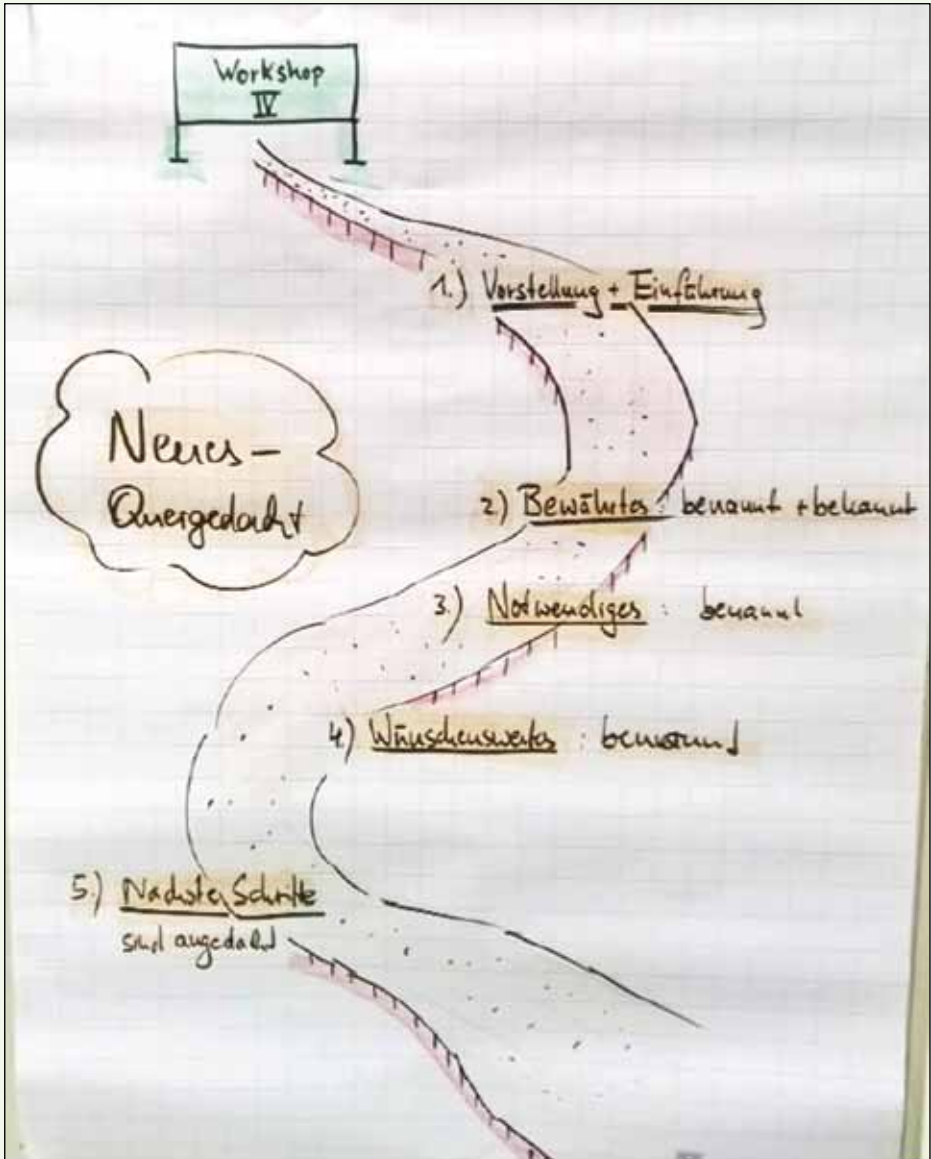 Workshop
IV
1.) Vorstellung + Einführung
Neues-
Quergedacht
2) Bewährtes: benannt + bekannt
3.) Notwendiges : benannt
4.) Wünschenswertes : benannt
5.) Nächste Schritte
sind angedacht